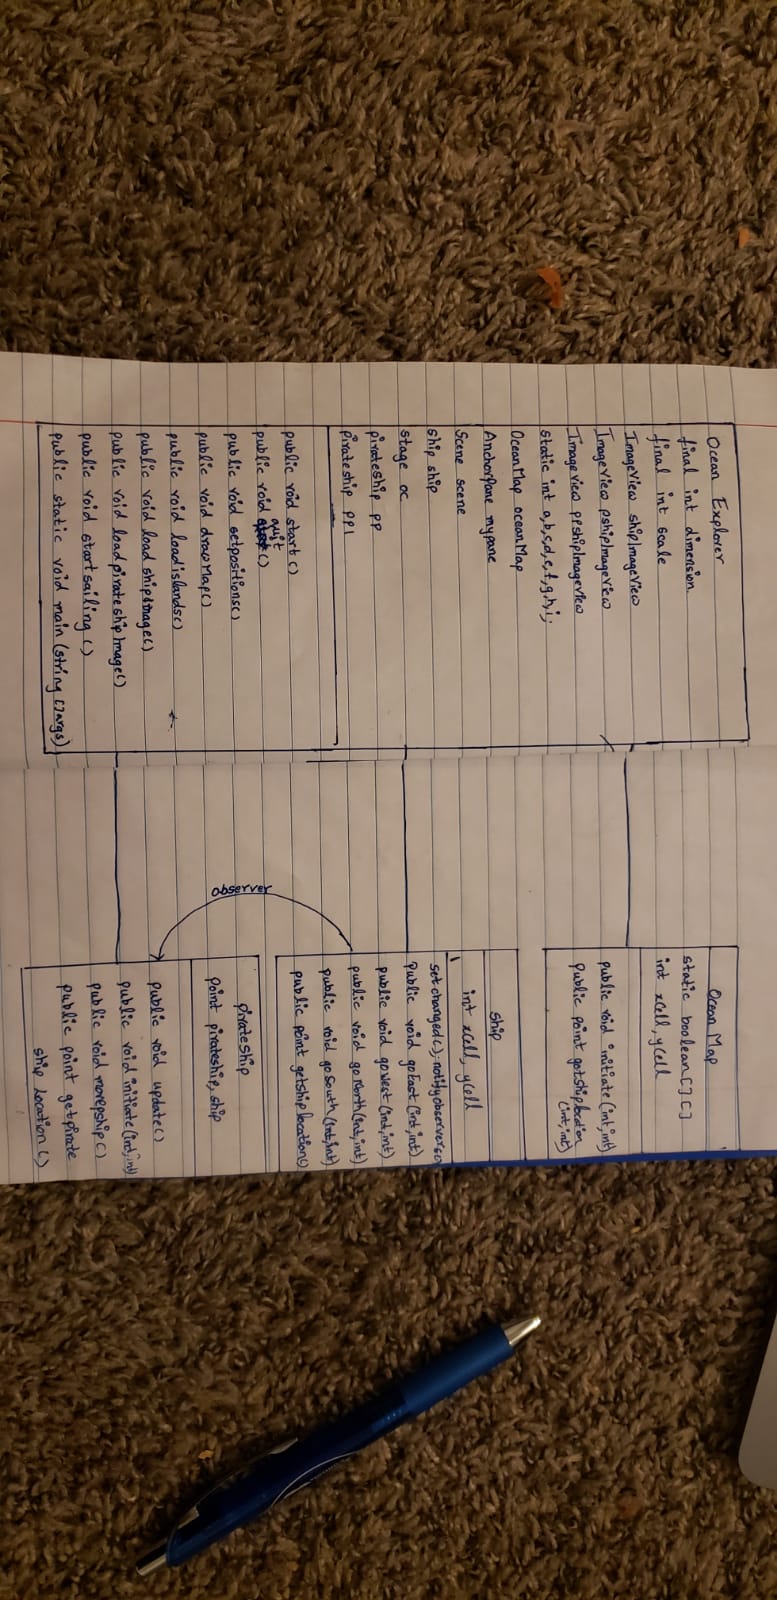 Ocean Explorer
final int dimension
final int scale
ImageView shipImageView
ImageView pshipImageView
ImageView ppshipImageView
static int a,b,c,d,e,f,g,h,i;
OceanMap oceanMap
AnchorPane mypane
Scene scene
ship ship
stage oc
pirateship pp
pirateship pp1
public void start()
public void quit()
public void setpositions()
public void drawMap()
public void loadislands()
public void load shipImage()
public void loadpirateshipImage()
public void startsailing()
public static void main (string []args)
Ocean Map
static boolean[][]
int xCell, yCell
public void initiate (int,int)
public point getshiplocation
(int,int)
ship
int xCell, yCell
setchanged(); notifyobservers()
Public void goEast (int,int)
public void goWest (int,int)
public void goNorth (int,int)
public void goSouth (int,int)
public point getshiplocation()
observer
pirateship
point pirateship, ship
public void update()
public void initiate (int,int)
public void movepship()
public point getpirate
ship location()